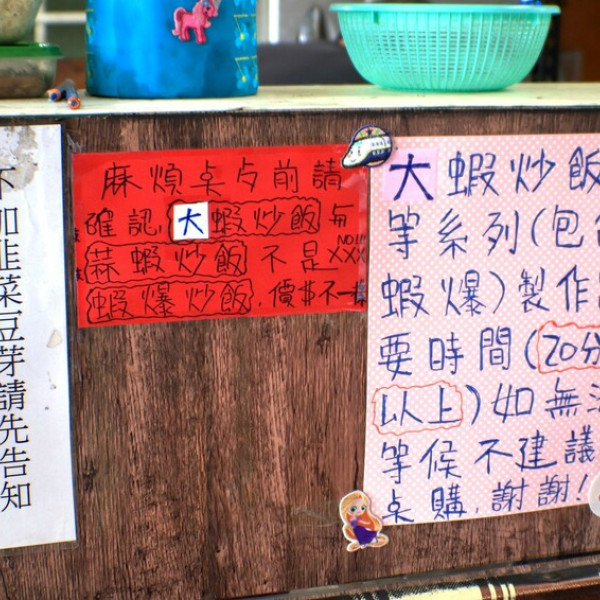 不加韭菜豆芽請先告知
麻煩桌前請
確認大蝦炒飯與
蒜蝦炒飯不是XXX
NO!!
蝦爆炒飯.價$不一樣
大蝦炒飯
等系列(包
蝦爆)製作
要時間(20分
以上)如無法
等候不建議
桌購,謝謝!